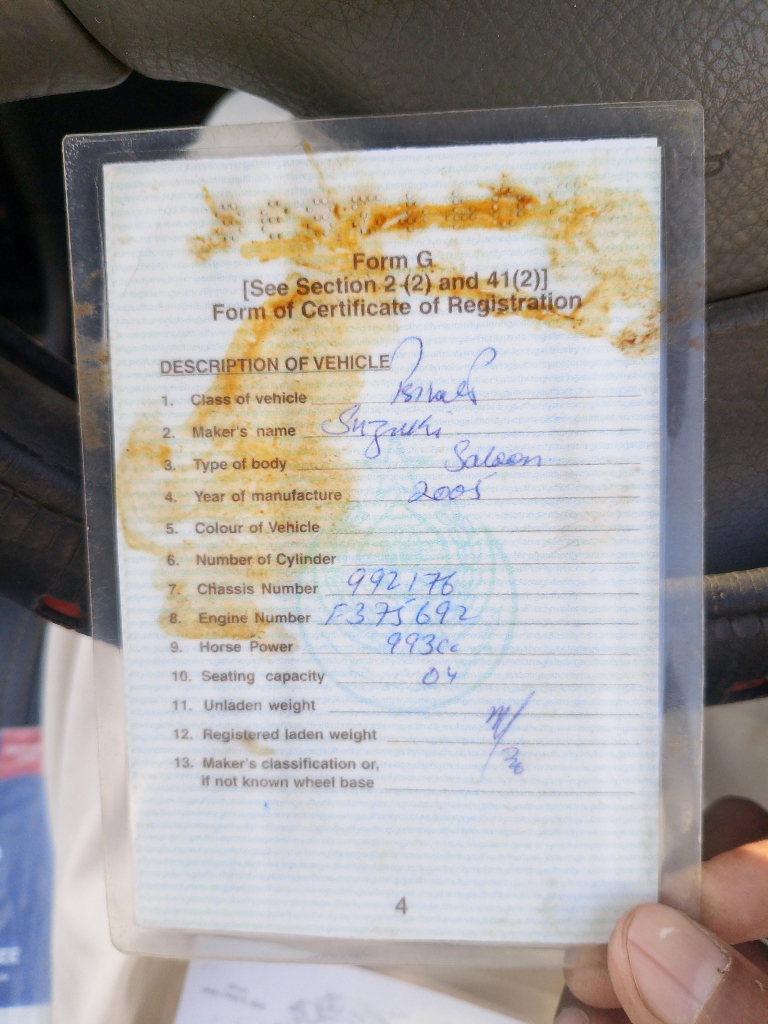 Form G
[See Section 2 (2) and 41(2)]
Form of Certificate of Registration
DESCRIPTION OF VEHICLE
1. Class of vehicle
2. Maker's name Suzuki
3. Type of body Saloon
4. Year of manufacture 2005
5. Colour of Vehicle
6. Number of Cylinder
7. Chassis Number 992176
8. Engine Number F375692
9. Horse Power 993cc
10. Seating capacity 04
11. Unladen weight
12. Registered laden weight
13. Maker's classification or,
if not known wheel base
4